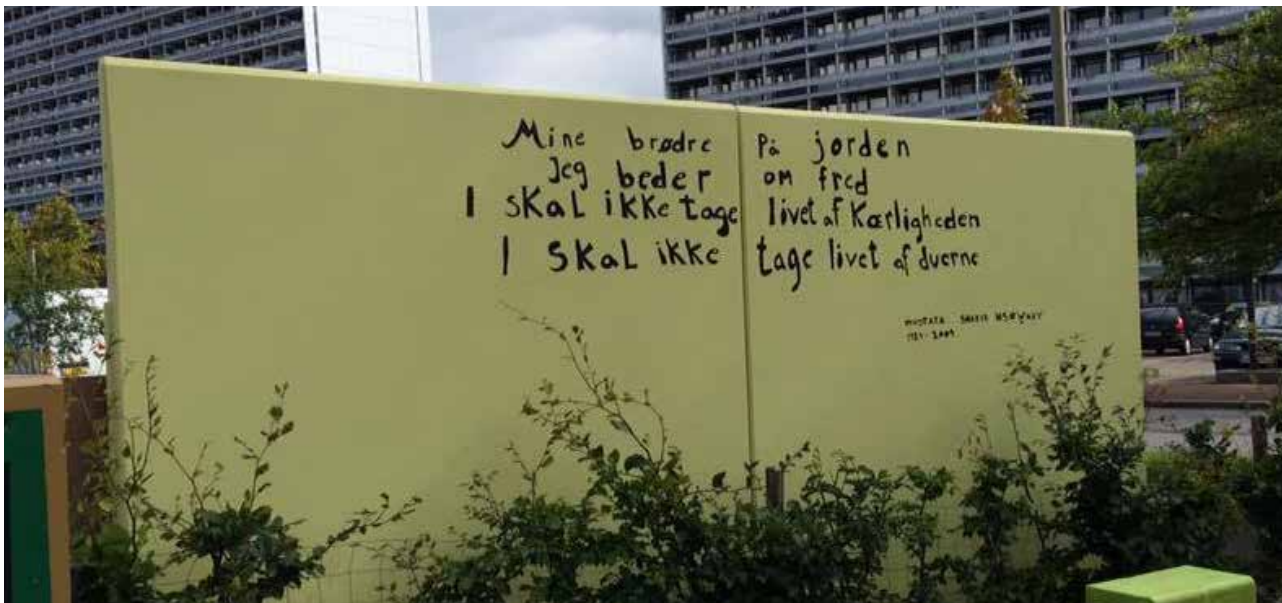 Mine brødre På jorden
Jeg beder om fred
I skal ikke tage livet af Kærligheden
I skal ikke tage livet af duerne
MUSTAFA